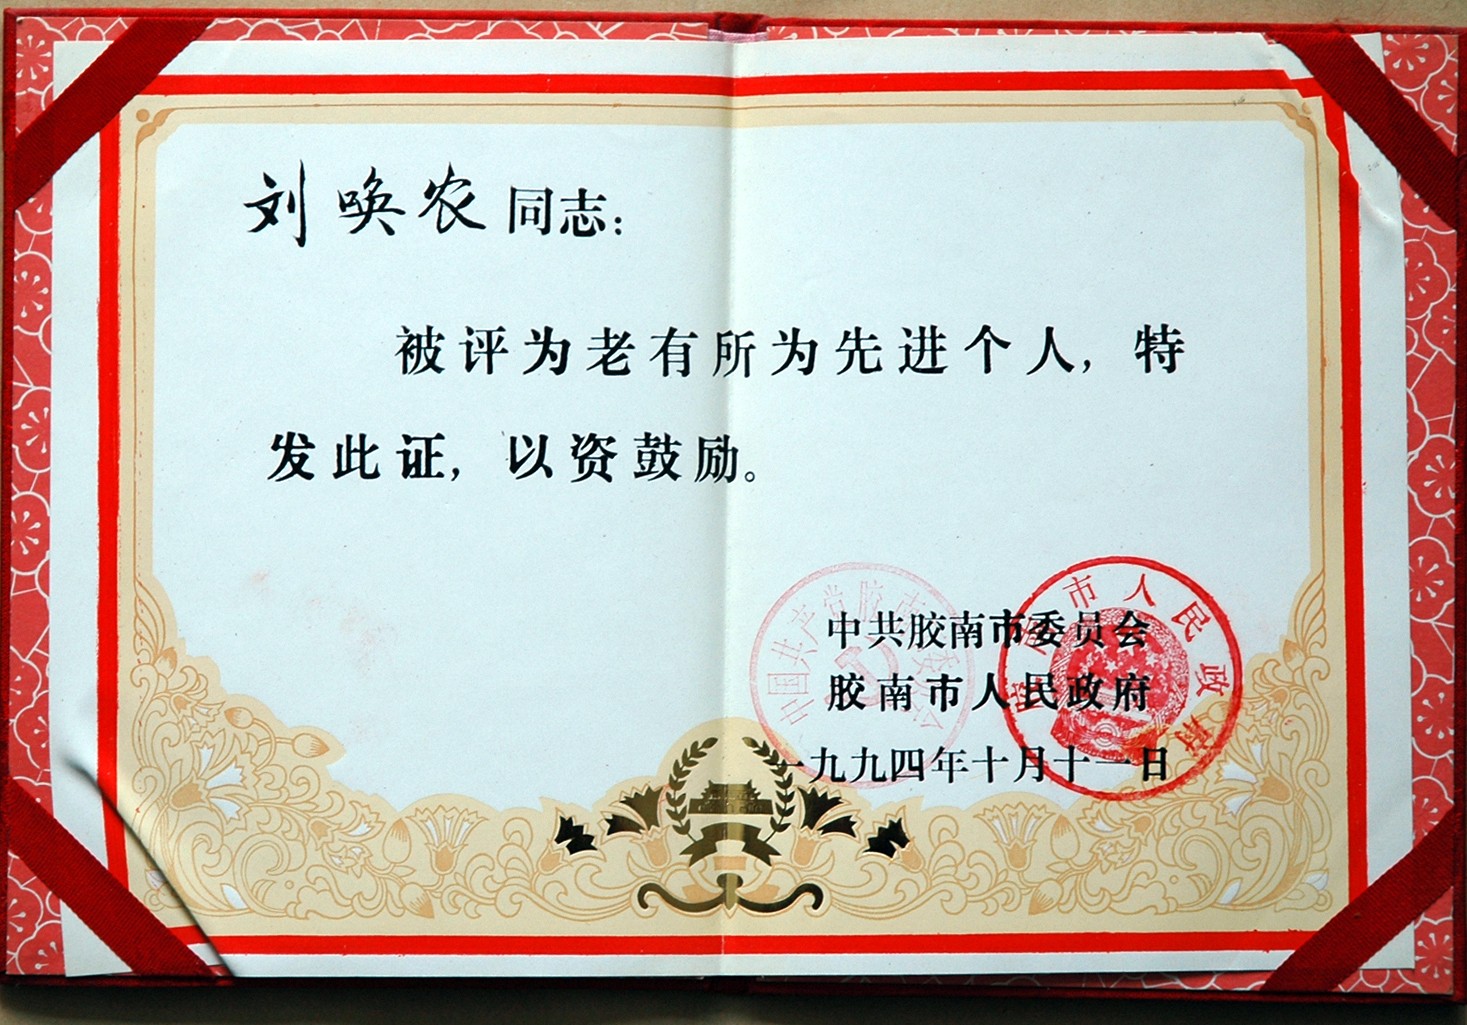 刘唤农同志：
被评为老有所为先进个人，特
发此证，以资鼓励。
中共胶南市委员会
胶南市人民政府
一九九四年十月十一日
中国共产党胶南市委员会
胶南市人民政府